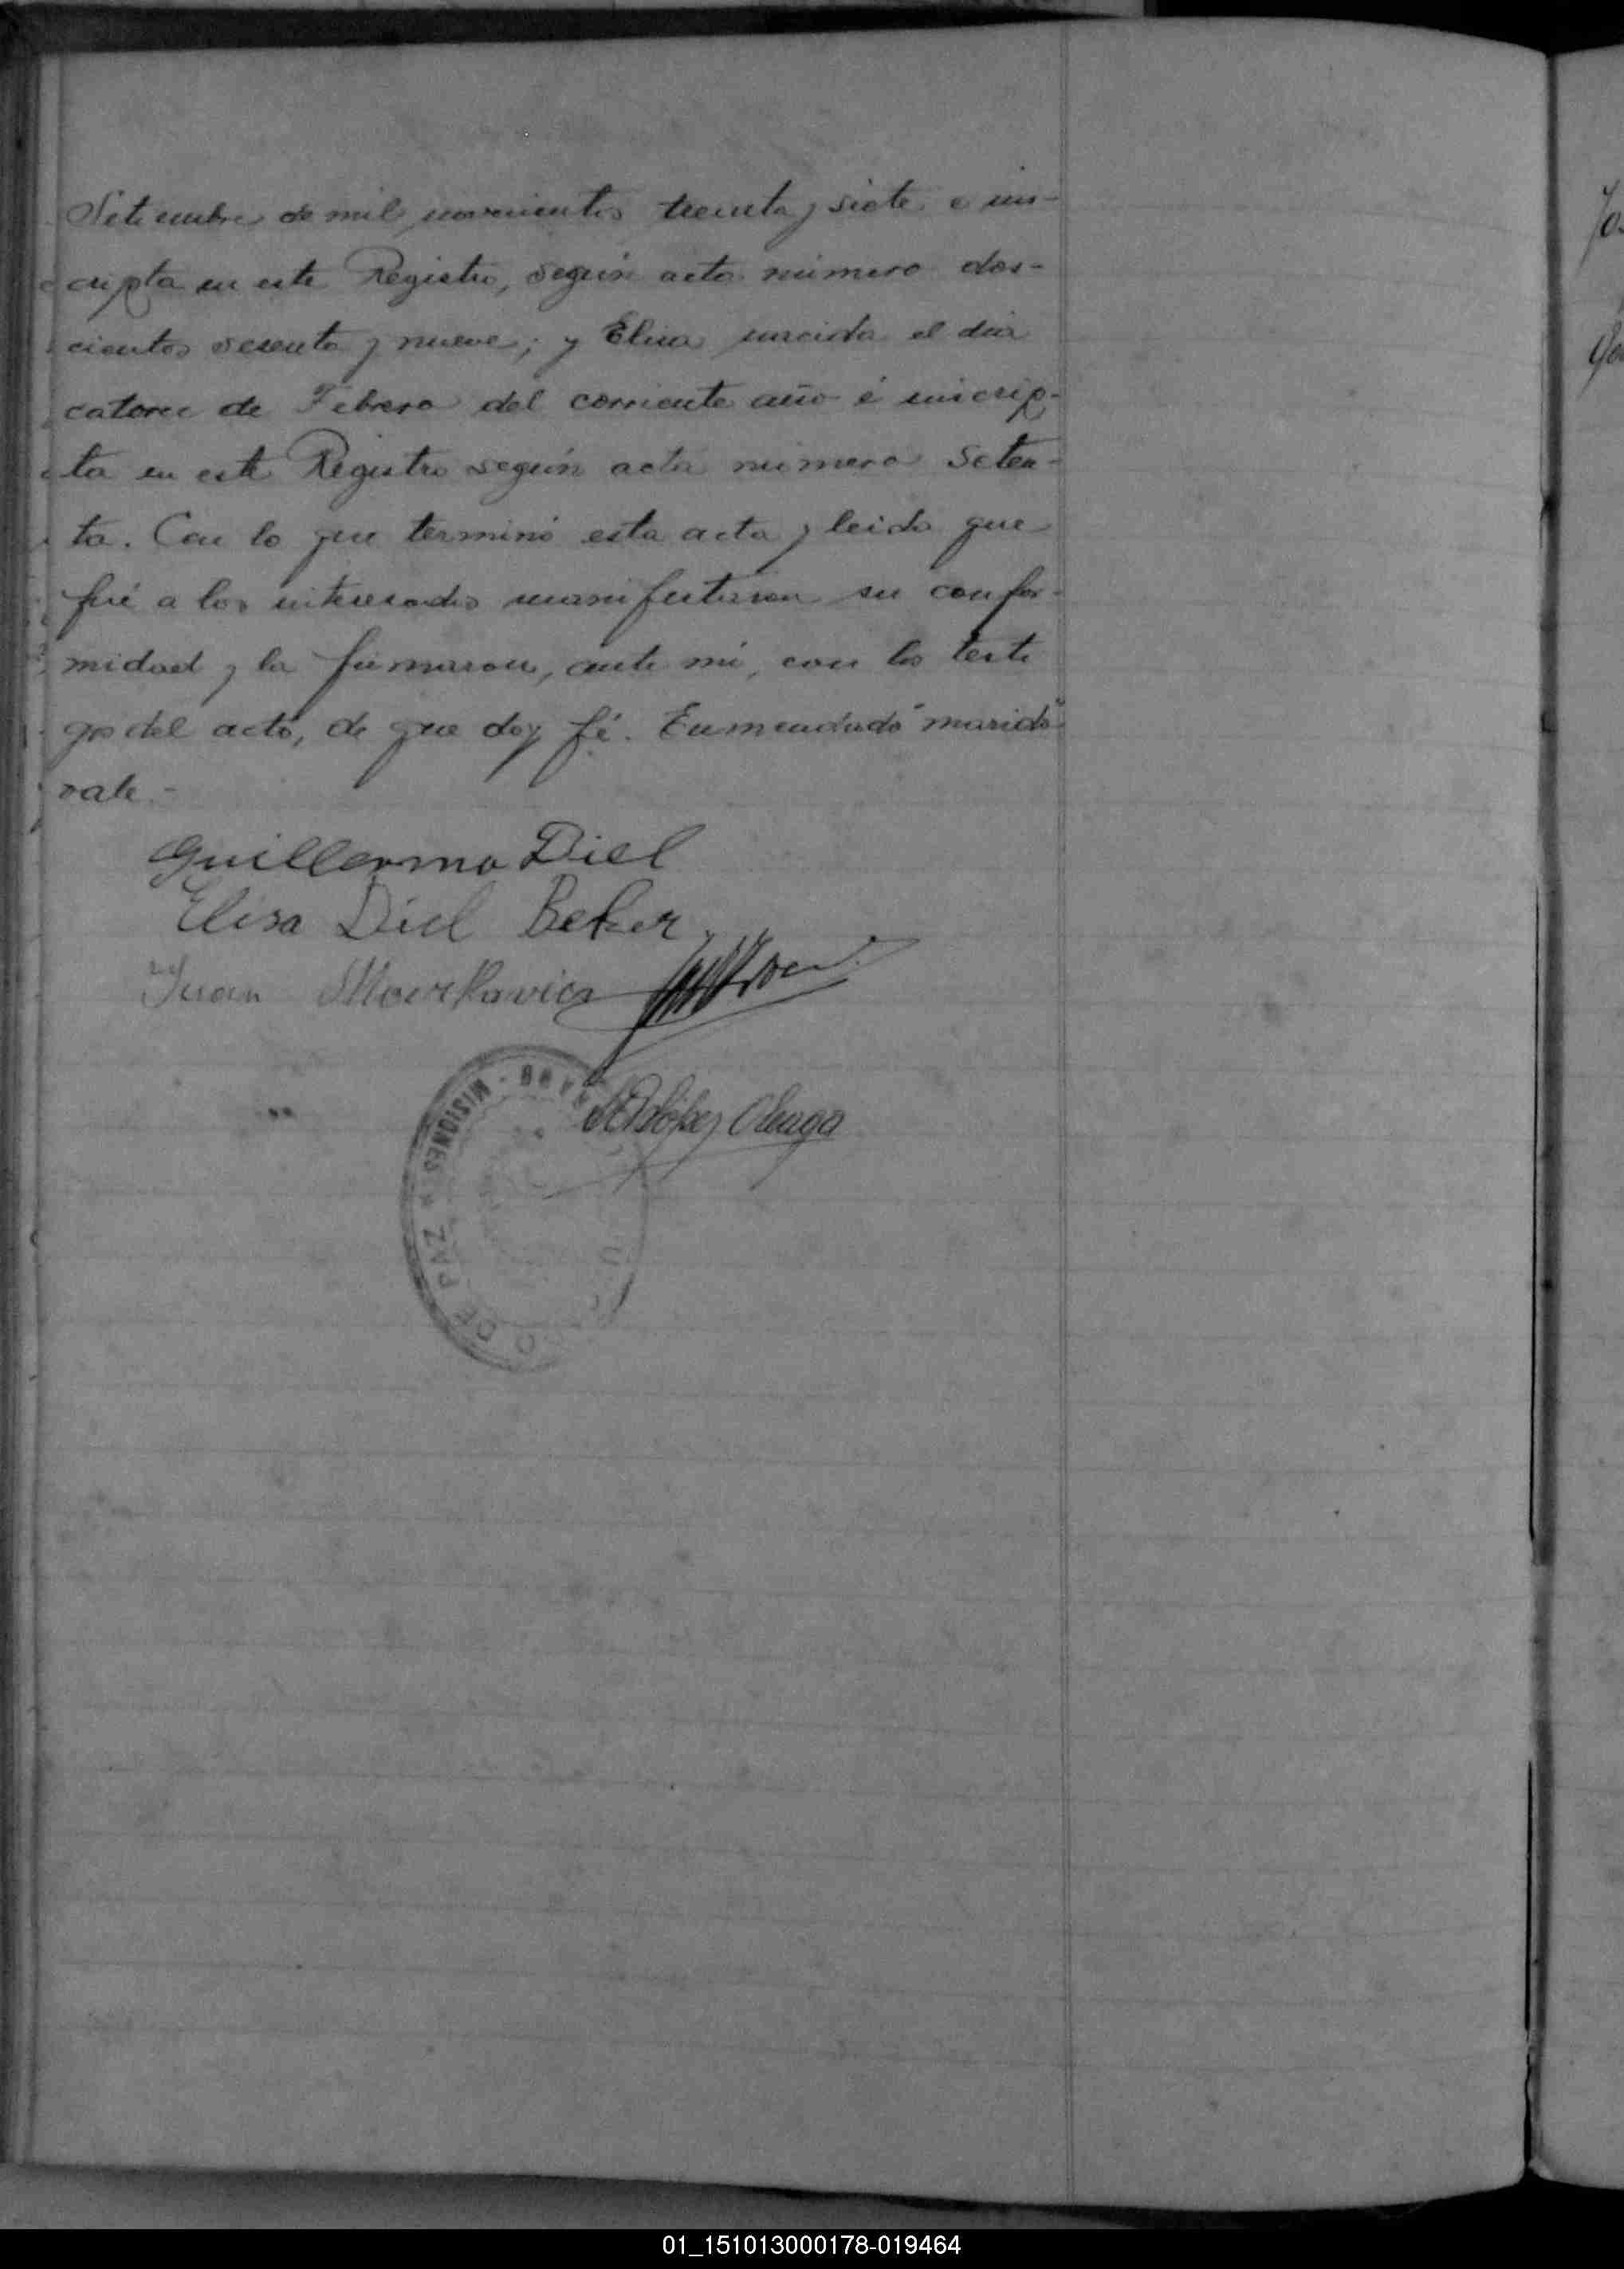 Setiembre de mil novecientos treinta y siete e ins-
cripta en este Registro, según acta número dos-
cientos sesenta y nueve; y Elisa nacida el día
catorce de Febrero del corriente año é inscrip-
ta en este Registro según acta número seten-
ta. Con lo que terminó esta acta y leida que
fué a los interesados manifestaron su confor-
midad y la firmaron, ante mí, con los testi
gos del acto, de que doy fé. Enmendado "marido"
vale.-
Guillermo Diel
Elisa Diel Beker
Juan Markavicz
López Aleaga
O DE PAZ * MISIONES
01_151013000178-019464